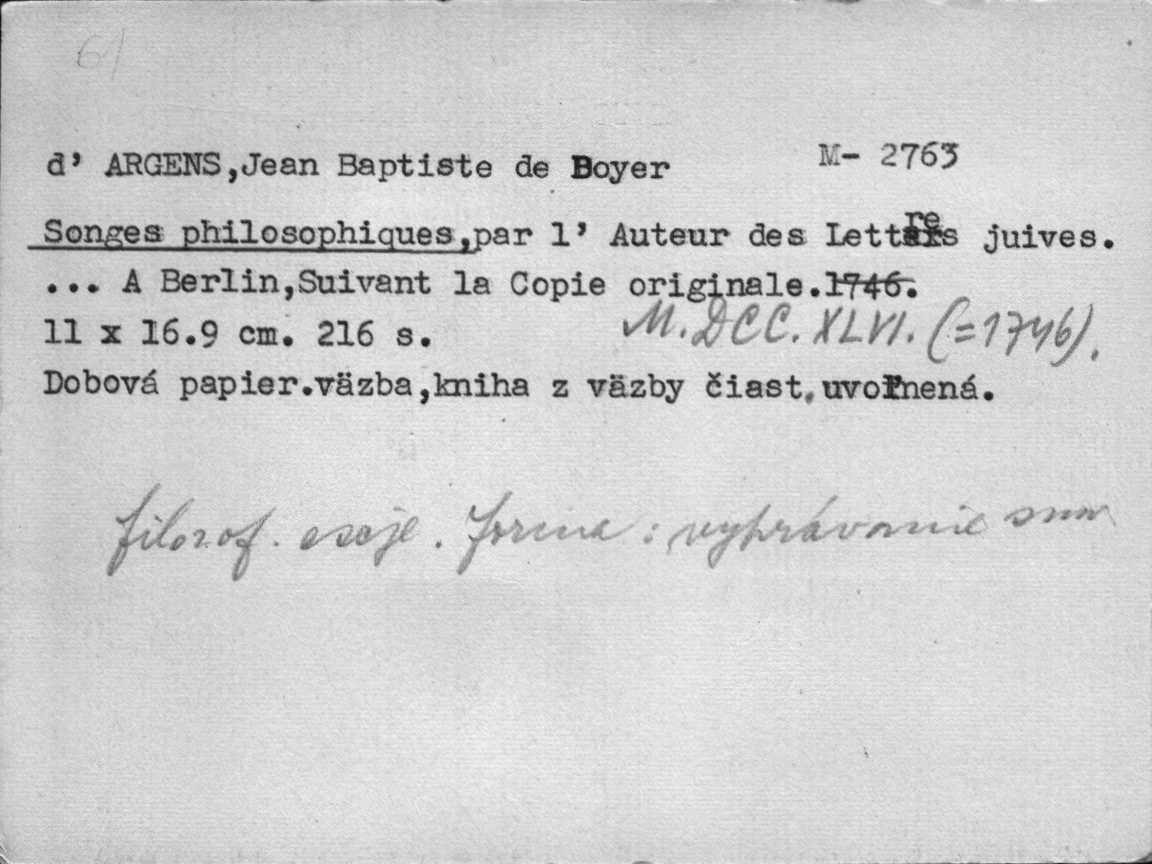 61
d' ARGENS,Jean Baptiste de Boyer M- 2763
Songes philosophiques,par l' Auteur des Lettres juives.
... A Berlin,Suivant la Copie originale.1746.
M.DCC.XLVI.(=1746).
11 x 16.9 cm. 216 s.
Dobová papier.väzba,kniha z väzby čiast.uvoľnená.
filozof. eseje. forma: vyprávanie snov